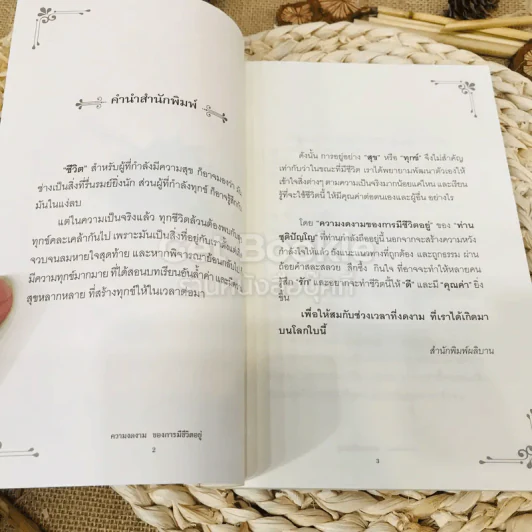 คำนำสำนักพิมพ์
"ชีวิต" สำหรับผู้ที่กำลังมีความสุข ก็อาจมองว่า
ช่างเป็นสิ่งที่รื่นรมย์ยิ่งนัก ส่วนผู้ที่กำลังทุกข์ ก็อาจรู้สึกว่า
มันในแง่ลบ
แต่ในความเป็นจริงแล้ว ทุกชีวิตล้วนต้องพบกับ
ทุกข์คละเคล้ากันไป เพราะมันเป็นสิ่งที่อยู่กับเราตั้งแต่
จวบจนลมหายใจสุดท้าย และหากพิจารณาย้อนกลับไป
มีความทุกข์มากมาย ที่ได้สอนบทเรียนอันล้ำค่า และมี
สุขหลากหลาย ที่สร้างทุกข์ให้ในเวลาต่อมา
ความงดงาม ของการมีชีวิตอยู่
2
ดังนั้น การอยู่อย่าง "สุข" หรือ "ทุกข์" จึงไม่สำคัญ
เท่ากับว่าในขณะที่มีชีวิต เราได้พยายามพัฒนาตัวเองให้
เข้าใจสิ่งต่างๆ ตามความเป็นจริงมากน้อยแค่ไหน และเรียน
รู้ที่จะใช้ชีวิตนี้ ให้มีคุณค่าต่อตนเองและผู้อื่น อย่างไร
โดย "ความงดงามของการมีชีวิตอยู่" ของ "ท่าน
ชุติปัญโญ" ที่ท่านกำลังถืออยู่นี้ นอกจากจะสร้างความหวัง
กำลังใจให้แล้ว ยังแนะแนวทางที่ถูกต้อง และถูกธรรม ผ่าน
ถ้อยคำสละสลวย ลึกซึ้ง กินใจ ที่อาจจะทำให้หลายคน
รู้สึก "รัก" และอยากจะทำชีวิตนี้ให้ "ดี" และมี "คุณค่า" ยิ่ง
ขึ้น
เพื่อให้สมกับช่วงเวลาที่งดงาม ที่เราได้เกิดมา
บนโลกใบนี้
สำนักพิมพ์ผลิบาน
3